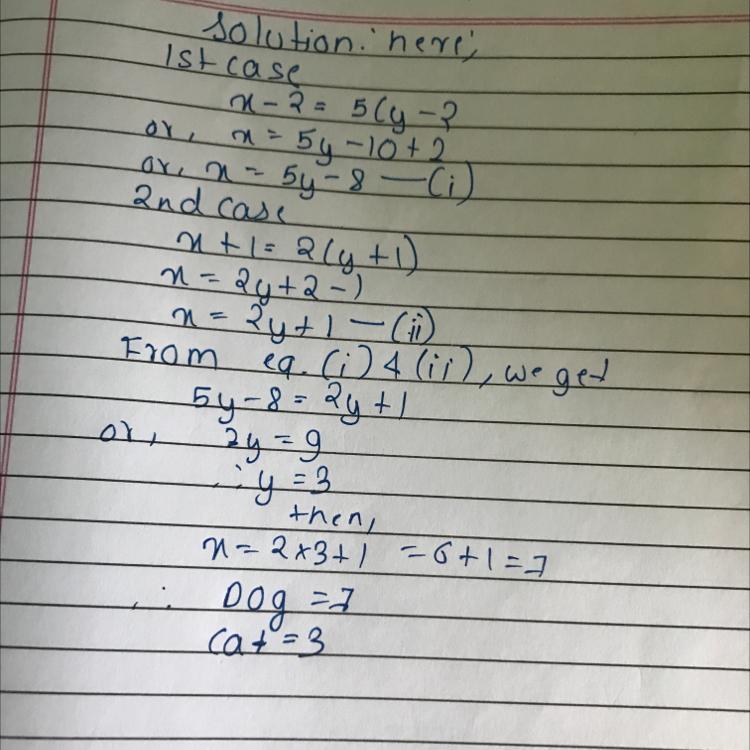 Solution: here,
1st case
x - 2 = 5(y - 2
or, x = 5y - 10 + 2
or, x = 5y - 8 — (i)
2nd case
x + 1 = 2(y + 1)
x = 2y + 2 - 1
x = 2y + 1 — (ii)
From eq. (i) & (ii), we get
5y - 8 = 2y + 1
or, 3y = 9
∴ y = 3
then,
x = 2×3+1 = 6+1 = 7
∴ Dog = 7
Cat = 3